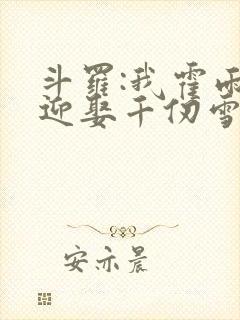 斗罗:我霍雨
迎娶千仞雪
安亦晨